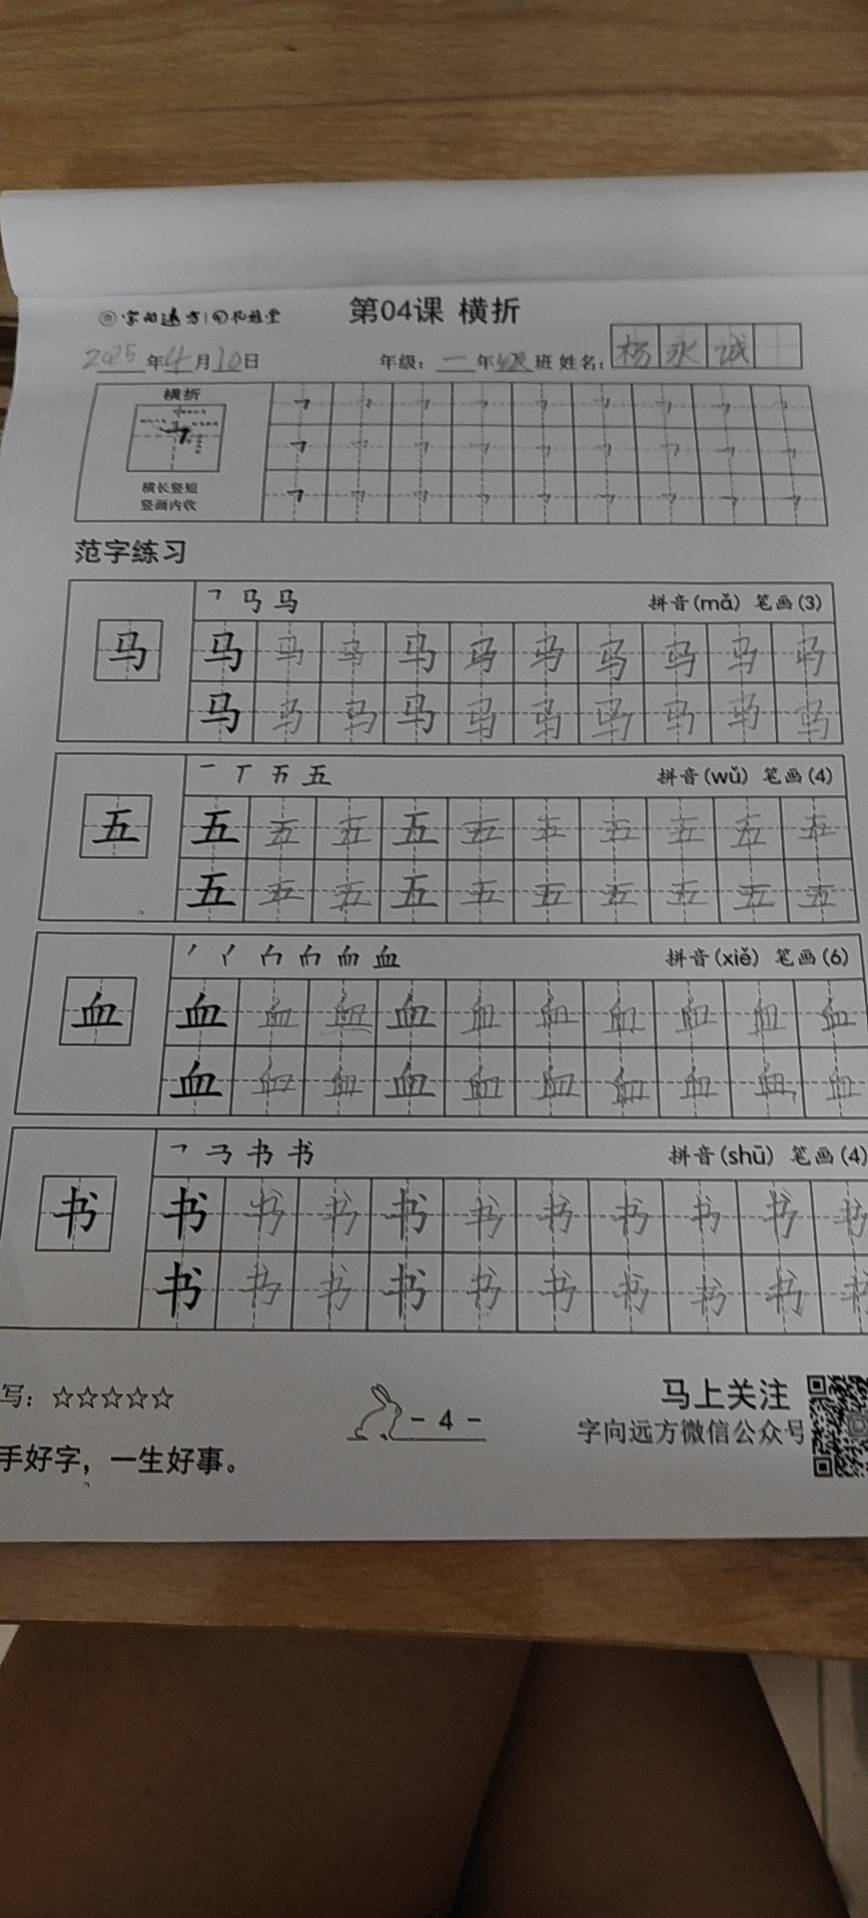 字向远方
第04课 横折
2025年4月10日 年级：一年级班 姓名：杨永诚
横折
横长竖短
竖画内收
范字练习
马 拼音(mǎ) 笔画(3)
马 马 马 马 马 马 马 马 马 马
马 马 马 马 马 马 马 马 马 马
五 拼音(wǔ) 笔画(4)
五 五 五 五 五 五 五 五 五 五
五 五 五 五 五 五 五 五 五 五
血 拼音(xiě) 笔画(6)
血 血 血 血 血 血 血 血 血 血
血 血 血 血 血 血 血 血 血 血
书 拼音(shū) 笔画(4)
书 书 书 书 书 书 书 书 书 书
书 书 书 书 书 书 书 书 书 书
写：☆☆☆☆☆
- 4 -
马上关注
字向远方微信公众号
手好字，一生好事。